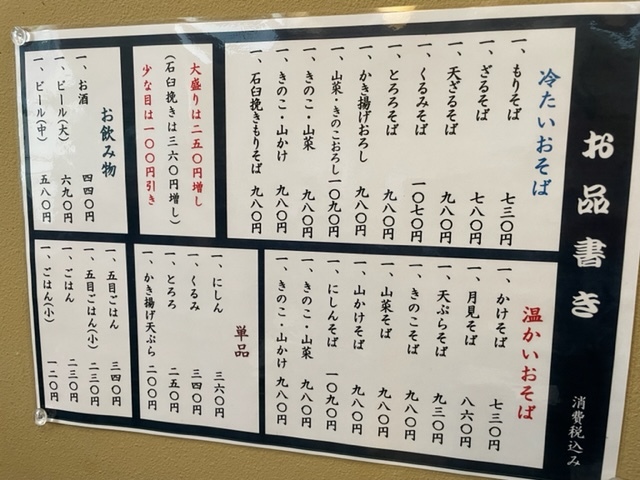 お品書き
消費税込み
冷たいおそば
一、もりそば 七三〇円
一、ざるそば 七八〇円
一、天ざるそば 九八〇円
一、くるみそば 一〇七〇円
一、とろろそば 九八〇円
一、かき揚げおろし 九八〇円
一、山菜・きのこおろし 一〇九〇円
一、きのこ・山菜 九八〇円
一、きのこ・山かけ 九八〇円
一、石臼挽きもりそば 九八〇円
大盛りは二五〇円増し
(石臼挽きは三六〇円増し)
少な目は一〇〇円引き
お飲み物
一、お酒 四四〇円
一、ビール(大) 六九〇円
一、ビール(中) 五八〇円
温かいおそば
一、かけそば 七三〇円
一、月見そば 八六〇円
一、天ぷらそば 九三〇円
一、きのこそば 九八〇円
一、山菜そば 九八〇円
一、山かけそば 九八〇円
一、にしんそば 一〇九〇円
一、きのこ・山菜 九八〇円
一、きのこ・山かけ 九八〇円
単品
一、にしん 三六〇円
一、くるみ 三四〇円
一、とろろ 二五〇円
一、かき揚げ天ぷら 二〇〇円
一、五目ごはん 三四〇円
一、五目ごはん(小) 二三〇円
一、ごはん 二三〇円
一、ごはん(小) 一二〇円